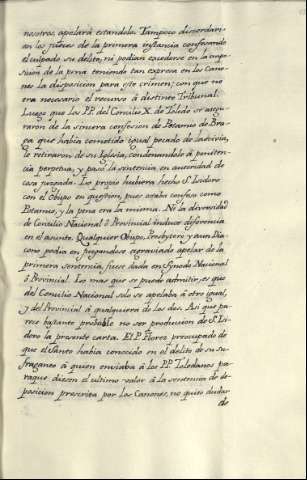 nosotros apelará estandole. Tampoco discordari-
an los jueces de la primera instancia confesando
el culpado su delito, ni podian excederse en la impo-
sicion de la pena teniendo tan expresa en los Cano-
nes la disposicion para este crimen; con que no
era necesario el recurso á distinto Tribunal.
Luego que los PP. del Concilio X. de Toledo se asegu-
raron de la sincera confesion de Potamio de Bra-
ga que habia cometido igual pecado de lascivia,
lo retiraron de su Iglesia, condenandolo á peniten-
cia perpetua, y pasó la sentencia en autoridad de
cosa juzgada. Lo propio hubiera hecho S. Isidoro
con el Obispo en question, pues estaba confeso como
Potamio, y la pena era la misma. No la diversidad
de Concilio Nacional ó Provincial induce diferencia
en el asunto. Qualquier Obispo, Presbytero, y aun Dia-
cono podia en juzgandose agraviado apelar de la
primera sentencia, fuese dada en Synodo Nacional
ó Provincial. Lo mas que se puede admitir, es que
del Concilio Nacional solo se apelaba á otro igual,
y del Provincial á qualquiera de los dos. Asi que pa-
rece bastante probable no ser produccion de Sn. Isi-
doro la presente carta. El P. Florez preocupado de
que el Santo habia conocido en el delito de su su-
fraganeo á quien enviaba á los PP. Toledanos pa-
raque diesen el ultimo valor á la sentencia de de-
posicion prescrita por los Canones, no quiso dudar
de